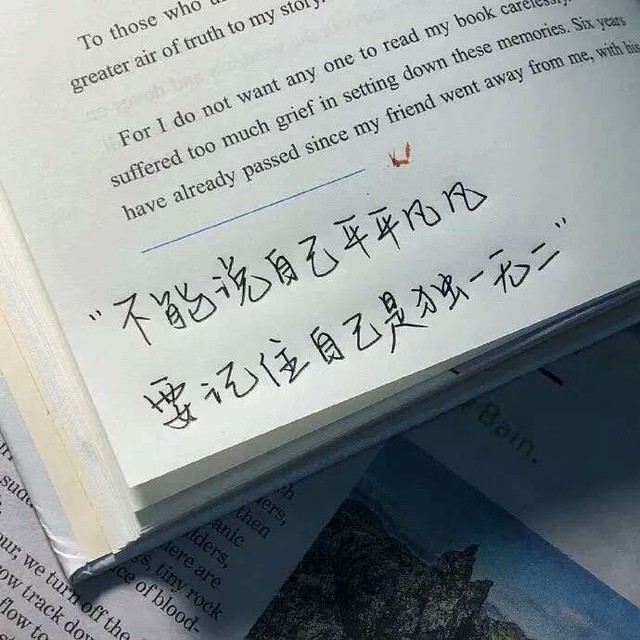 To those who
greater air of truth to my story
For I do not want any one to read my book carelessly.
suffered too much grief in setting down these memories. Six years
have already passed since my friend went away from me, with his
“不能说自己平平凡凡
要记住自己是独一无二”
Bain.
then
anic
here are
ys, tiny rock
ce of blood-
our, we turn off the
ow track down
flow to